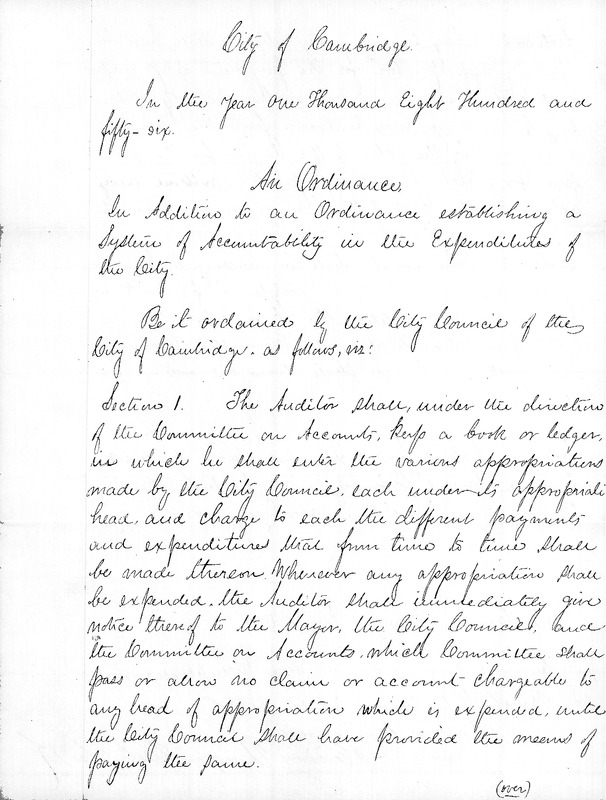 City of Cambridge.
In the year One Thousand Eight Hundred and
fifty-six.
An Ordinance,
In Addition to an Ordinance establishing a
System of Accountability in the Expenditures of
the City.
Be it ordained by the City Council of the
City of Cambridge. as follows, viz:
Section 1. The Auditor shall, under the direction
of the Committee on Accounts, keep a book or ledger,
in which he shall enter the various appropriations
made by the City Council, each under its appropriate
head, and charge to each the different payments
and expenditures that from time to time shall
be made thereon. Whenever any appropriation shall
be expended, the Auditor shall immediately give
notice thereof to the Mayor, the City Council, and
the Committee on Accounts, which Committee shall
pass or allow no claim or account chargeable to
any head of appropriation which is expended, until
the City Council shall have provided the means of
paying the same.
(over)